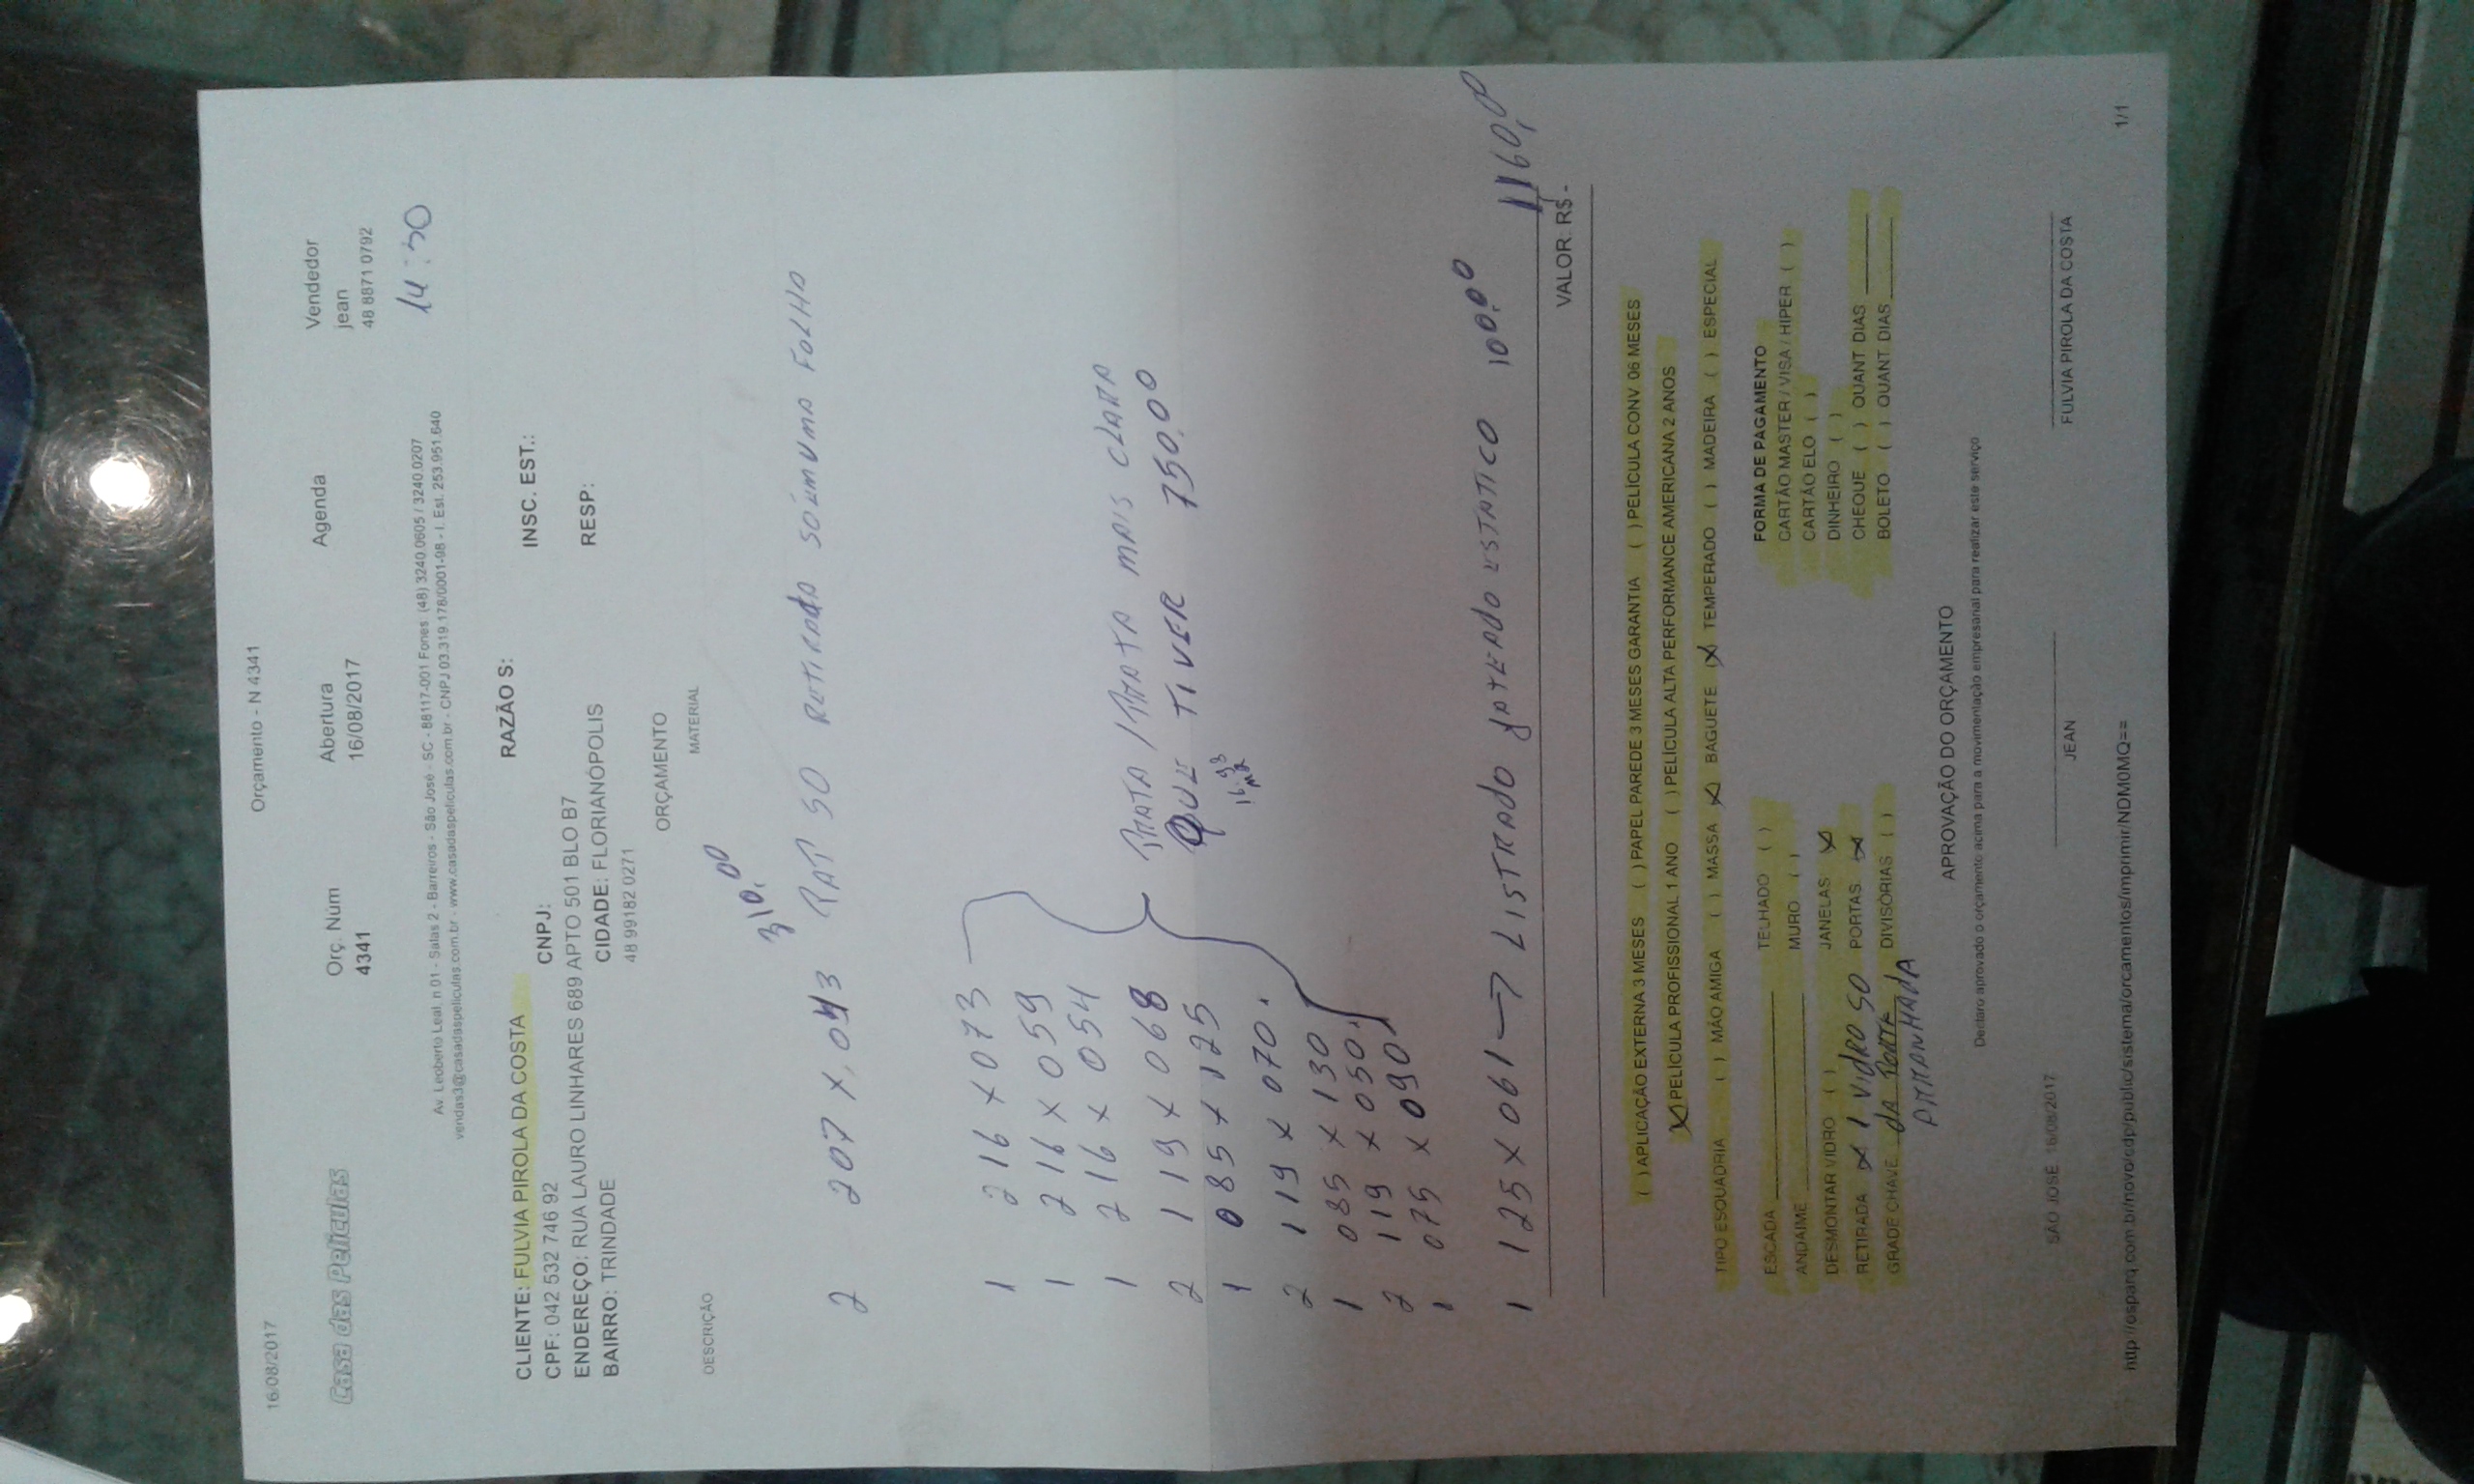 16/08/2017 Orçamento - N 4341
Casa das Películas
Orç. Núm Abertura Agenda Vendedor
4341 16/08/2017 jean
48 8871 0792
14:30
Av. Leoberto Leal, n 01 - Salas 2 - Barreiros - São José - SC - 88117-001 Fones: (48) 3240.0605 / 3240.0207
vendas3@casadaspeliculas.com.br - www.casadaspeliculas.com.br - CNPJ 03.319.178/0001-98 - I. Est. 253.951.640
CLIENTE: FULVIA PIROLA DA COSTA RAZÃO S: INSC. EST.:
CPF: 042 532 746 92 CNPJ:
ENDEREÇO: RUA LAURO LINHARES 689 APTO 501 BLO B7 RESP:
BAIRRO: TRINDADE CIDADE: FLORIANÓPOLIS
48 99182 0271
ORÇAMENTO
DESCRIÇÃO MATERIAL
310,00
2 207 x, 043 50 RETIRADA SÓ EM UMA FOLHA
1 216 x 073
1 216 x 059
1 216 x 054
2 119 x 068 PRATA / PRATA MAIS CLARA
1 085 x 125 QUE TIVER 750,00
16.93 M2
2 119 x 070.
1 085 x 130
2 119 x 050.
1 075 x 090
1 125 x 061 → LISTRADO JATEADO ESTATICO 100,00
1160,00
VALOR: R$ -
( ) APLICAÇÃO EXTERNA 3 MESES ( ) PAPEL PAREDE 3 MESES GARANTIA ( ) PELÍCULA CONV 06 MESES
(X) PELÍCULA PROFISSIONAL 1 ANO ( ) PELÍCULA ALTA PERFORMANCE AMERICANA 2 ANOS
TIPO ESQUADRIA ( ) MÃO AMIGA ( ) MASSA X BAGUETE (X TEMPERADO ( ) MADEIRA ( ) ESPECIAL
ESCADA TELHADO ( ) FORMA DE PAGAMENTO
ANDAIME MURO ( ) CARTÃO MASTER / VISA / HIPER ( )
DESMONTAR VIDRO ( ) JANELAS X CARTÃO ELO ( )
RETIRADA X 1 VIDRO SO PORTAS X DINHEIRO ( )
GRADE CHAVE da PORTA DIVISÓRIAS ( ) CHEQUE ( ) QUANT DIAS
ARRANHADA BOLETO ( ) QUANT DIAS
APROVAÇÃO DO ORÇAMENTO
Declaro aprovado o orçamento acima para a movimentação empresarial para realizar este serviço
SÃO JOSÉ 16/08/2017 JEAN FULVIA PIROLA DA COSTA
http://osparq.com.br/novo/cdp/public/sistema/orcamentos/imprimir/NDM0MQ== 1/1